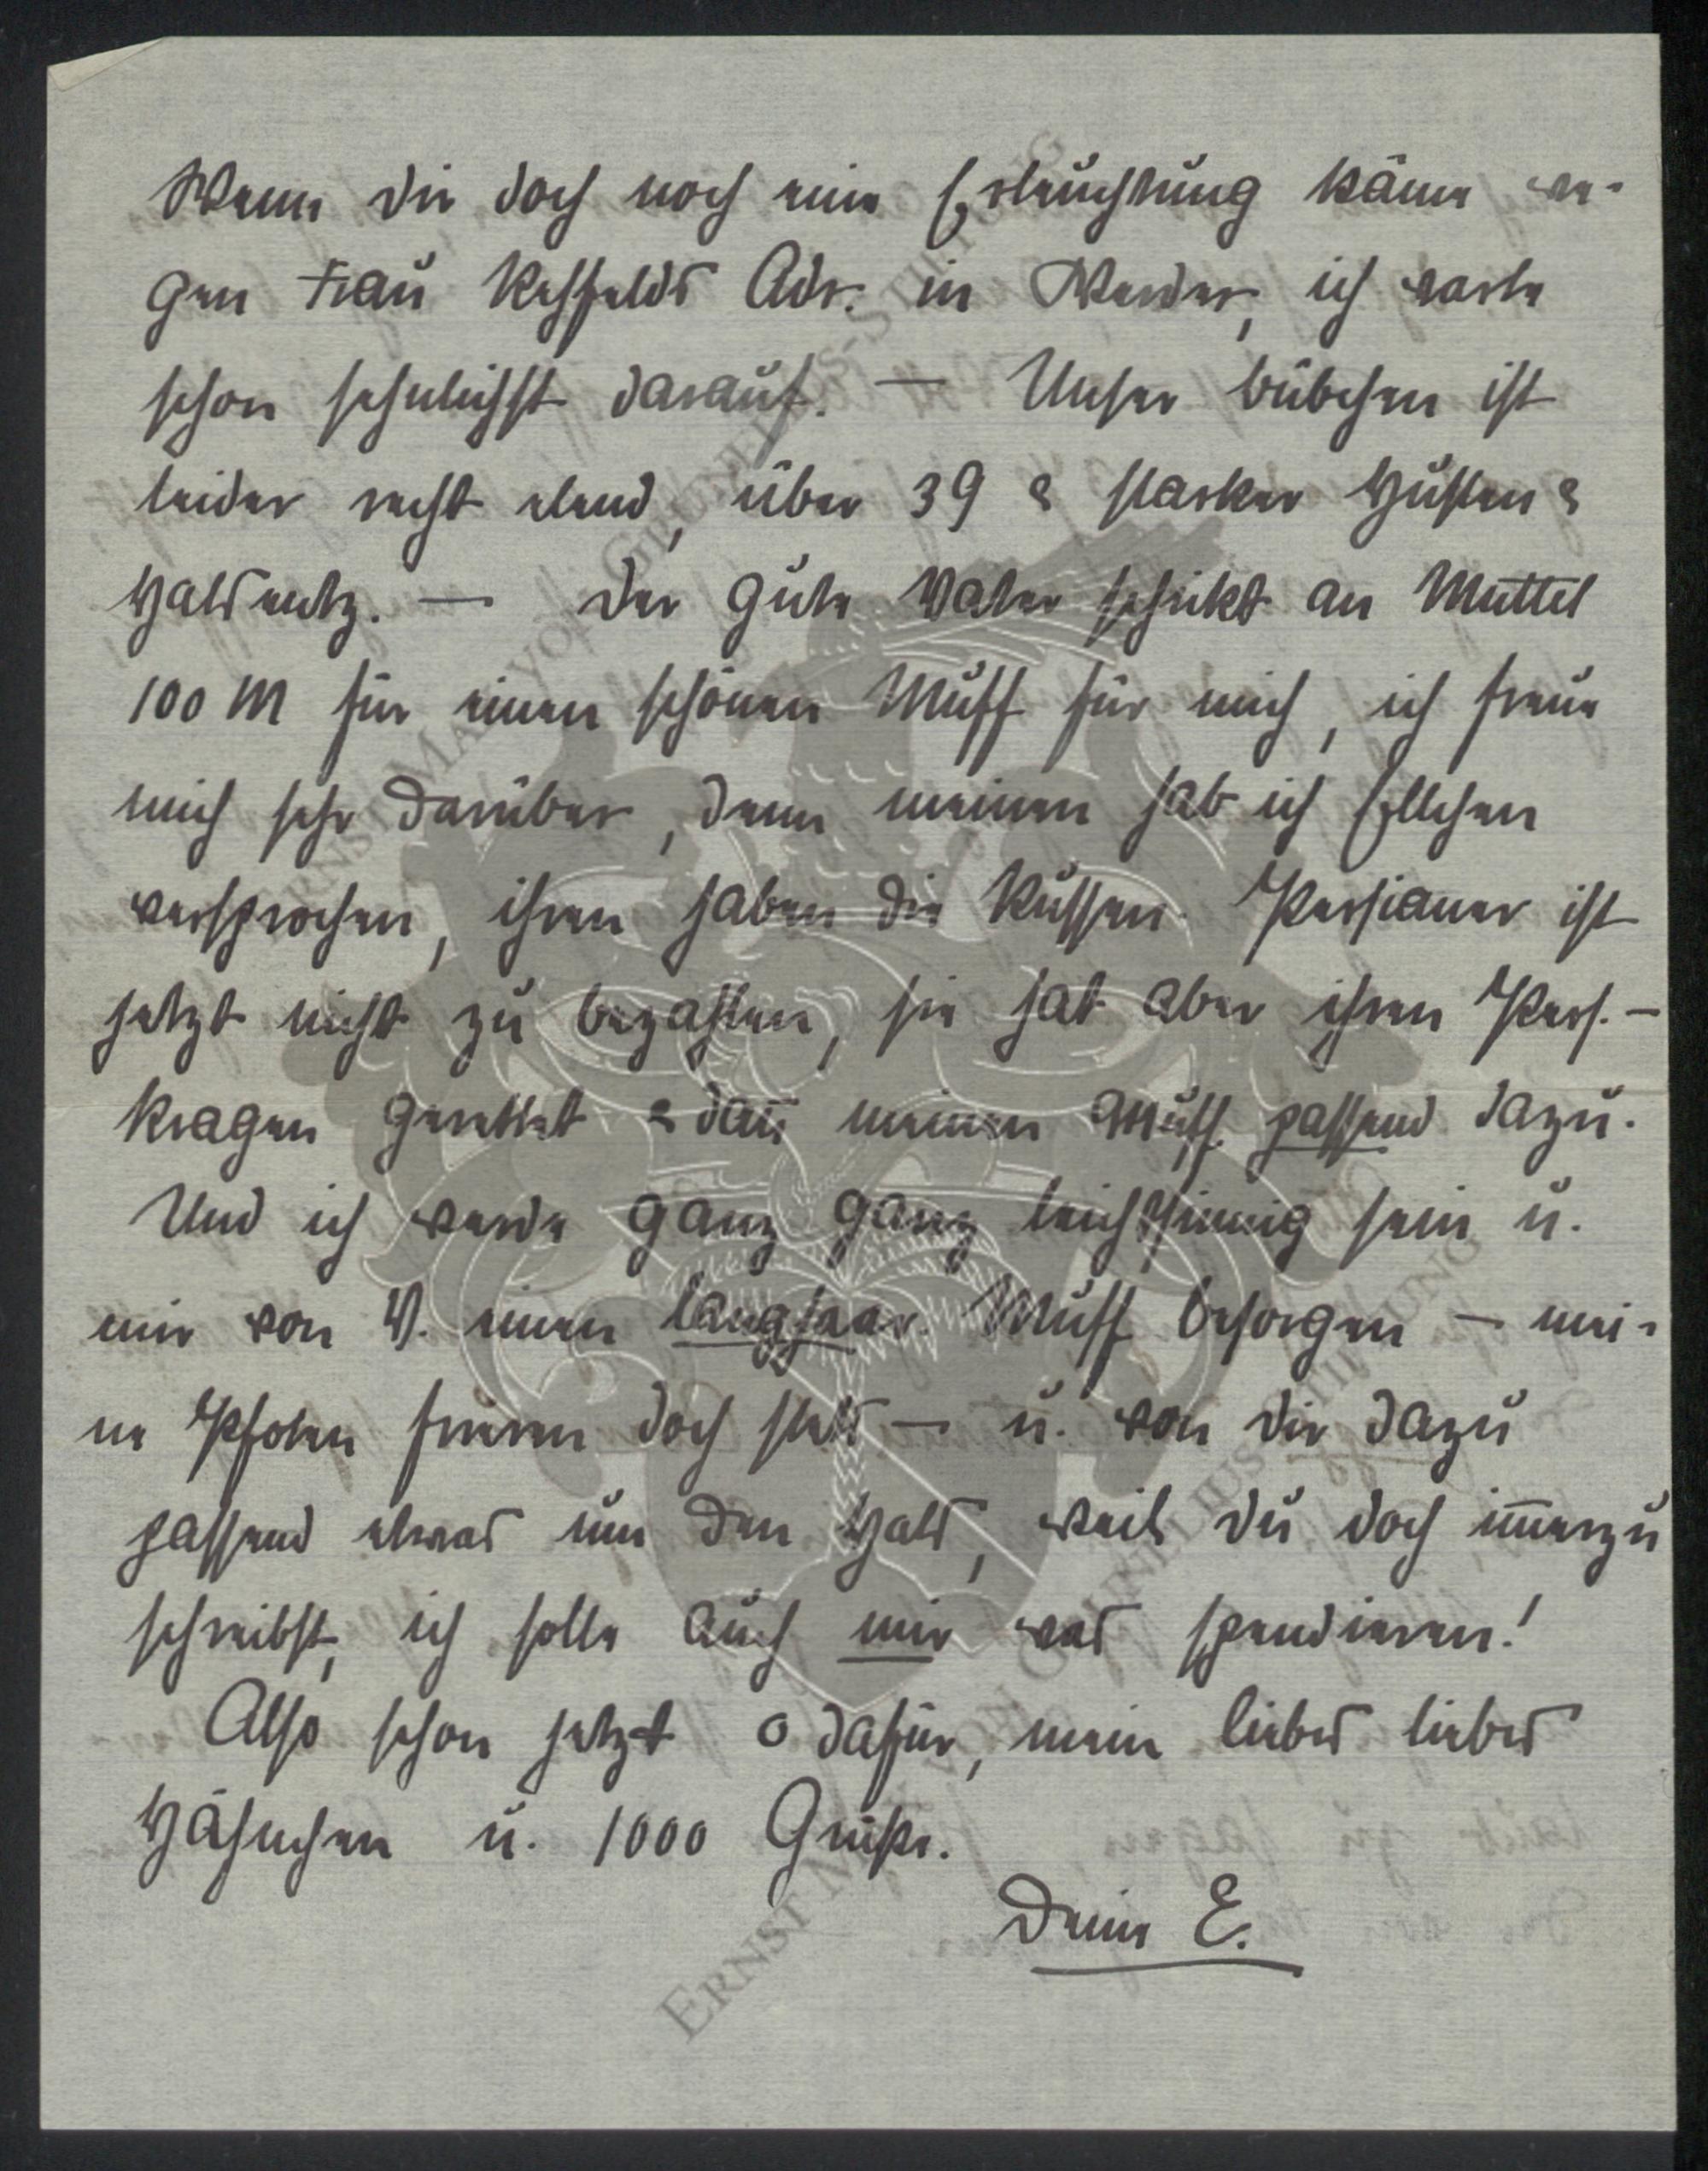 Wenn dir doch noch eine Erleuchtung käme we-
gen Frau Rehfelds Adr. in Werder, ich warte
schon sehnlichst darauf. — Unser Bübchen ist
leider recht elend, über 39 & starker Husten &
Halsentz. — Der gute Vater schickt an Muttel
100 M für einen schönen Muff für mich, ich freue
mich sehr darüber, denn meinen hab ich Ellchen
versprochen, ihren haben die Russen. Persianer ist
jetzt nicht zu bezahlen, sie hat aber ihren Pers.-
kragen gerettet & dan̅ meinen Muff passend dazu.
Und ich werde ganz ganz leichtsinnig sein u.
mir von V. einen langhaar. Muff besorgen — mei-
ne Pfoten frieren doch stets — u. von dir dazu
passend etwas um den Hals, weil du doch im̅erzu
schreibst, ich solle auch mir was spendieren!
Also schon jetzt o dafür, mein liebes liebes
Häschen u. 1000 Grüße.
Deine E.